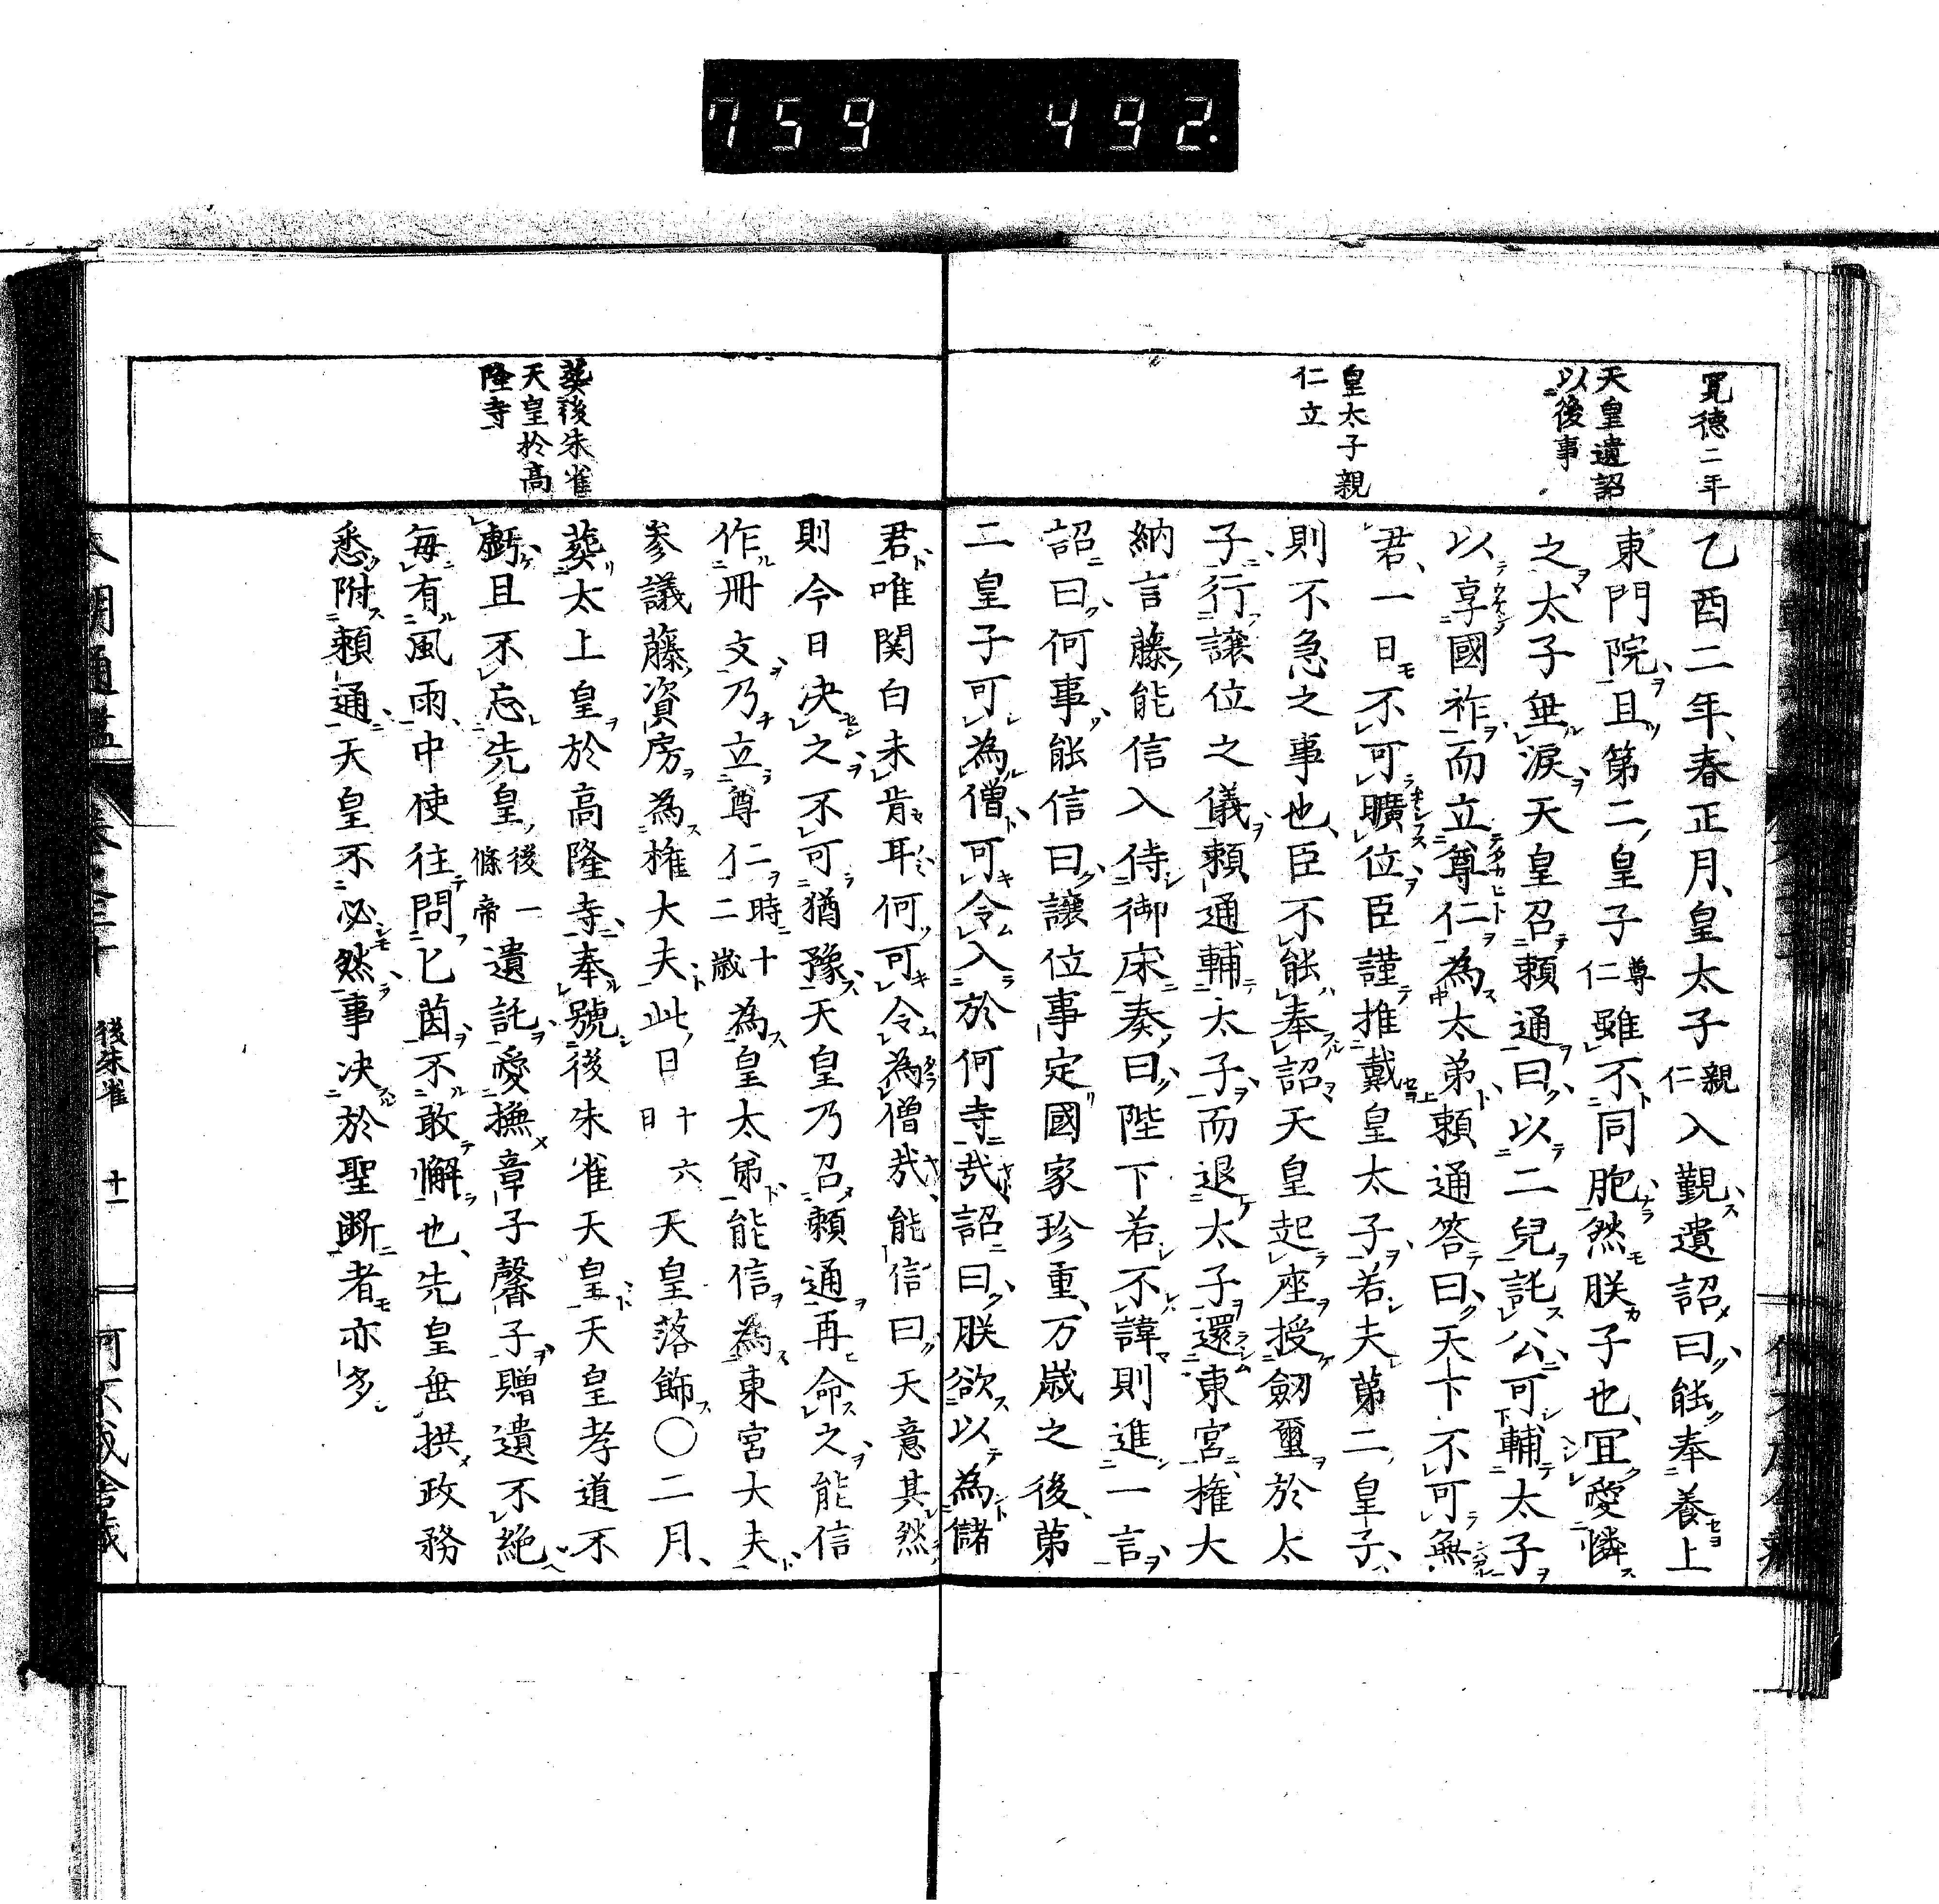 759 492.
寛德二年
天皇遺詔
以後事
皇太子親
仁立
乙酉二年春正月皇太子親仁入覲遺詔曰能奉養上
東門院且第二皇子尊仁雖不同胞然朕子也宜愛憐
之太子垂涙天皇召頼通曰以二兒託公可輔太子
以享國祚而立尊仁為太弟頼通答曰天下不可無
君一日不可曠位臣謹推戴皇太子若夫第二皇子
則不急之事也臣不能奉詔天皇起座授劒璽於太
子行譲位之儀頼通輔太子而退太子還東宮権大
納言藤能信入侍御床奏曰陛下若不諱則進一言
詔曰何事能信曰譲位事定國家珍重万歳之後第
二皇子可為僧可令入於何寺哉詔曰朕欲以為儲
葬後朱雀
天皇於高
隆寺
君唯関白未肯耳何可令為僧哉能信曰天意其然
則今日决之不可猶豫天皇乃召頼通再命之能信
作冊文乃立尊仁時十二歳為皇太弟能信為東宮大夫
參議藤資房為権大夫此日十六日天皇落飾〇二月
葬太上皇於高隆寺奉號後朱雀天皇天皇孝道不
虧且不忘先皇後一條帝遺託愛撫章子馨子贈遺不絶
毎有風雨中使往問匕茵不敢懈也先皇垂拱政務
悉附頼通天皇不必然事决於聖断者亦多
後朱雀 十一